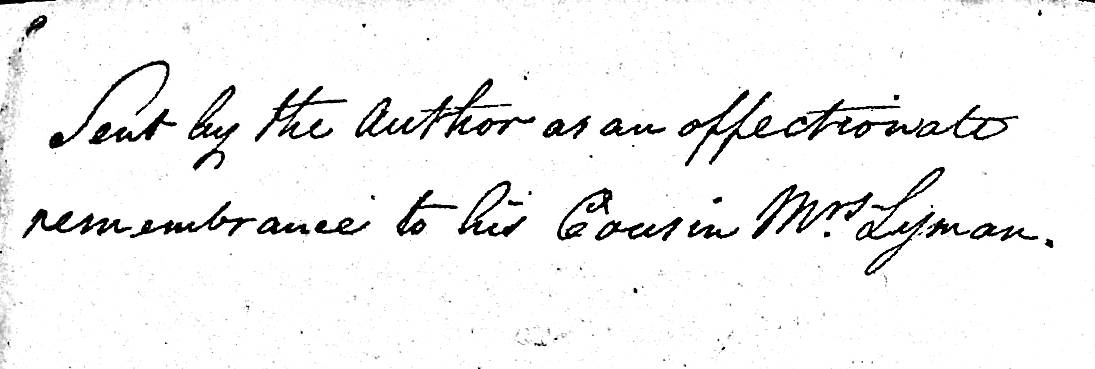 Sent by the Author as an affectionate
remembrance to his Cousin Mrs. Lyman.